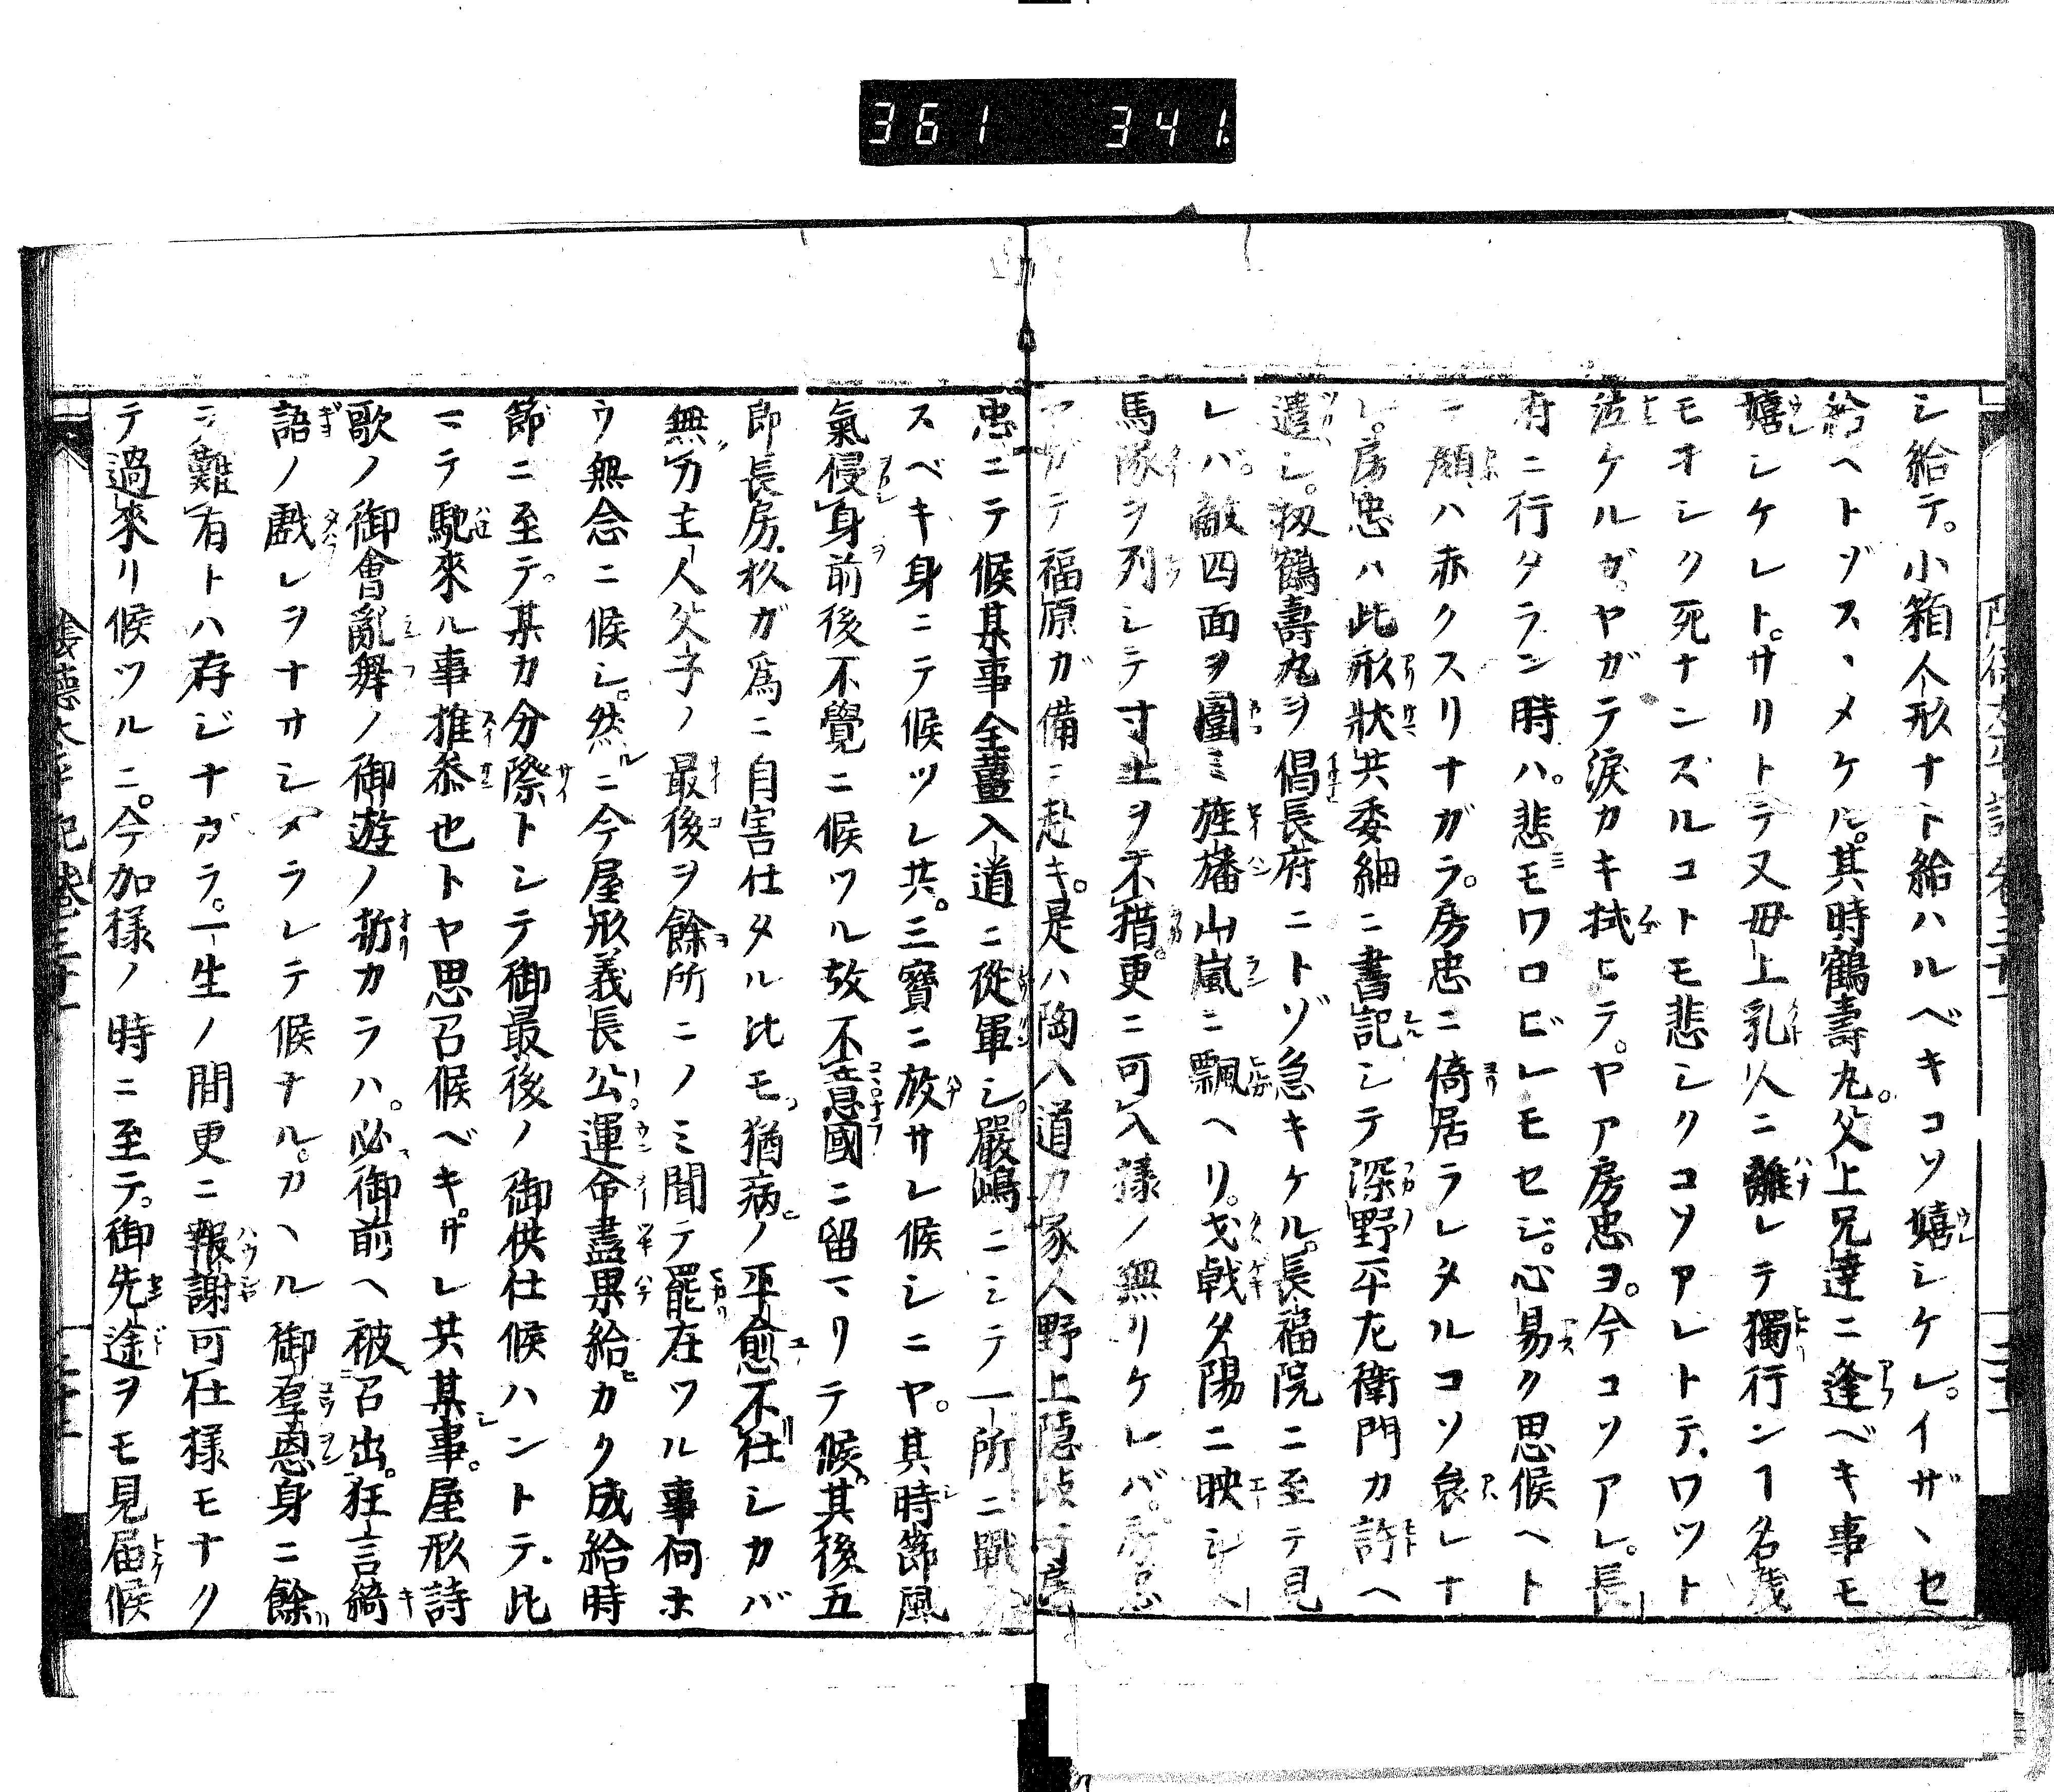 361 341
シ給テ。小箱人形ナト給ハルベキコソ嬉シケレ。イザヽセ
給ヘトゾスヽメケル。其時鶴壽丸。父上兄達ニ逢ベキ事モ
嬉シケレト。サリトテ又母上乳人ニ離レテ獨行ンヿ名残
モオシク死ナンズルコトモ悲シクコソアレトテ。ワツト
泣ケルガ。ヤガテ涙カキ拭ヒテ。ヤア房忠ヨ。今コソアレ。長
府ニ行タラン時ハ。悲モワロビレモセジ。心易ク思候ヘト
テ顔ハ赤クスリナガラ。房忠ニ倚居ラレタルコソ哀レナ
レ。房忠ハ此形狀共委細ニ書記シテ深野平左衛門カ許ヘ
遣シ。扨鶴壽丸ヲ倡長府ニトゾ急キケル。長福院ニ至テ見
レバ。敵四面ヲ圍ミ旌旛山嵐ニ飄ヘリ。戈戟夕陽ニ映シ
馬隊ヲ列シテ寸土ヲ不措。更ニ可入様ノ無リケレバ。房忠
ヤガテ福原ガ備ニ赴キ。是ハ陶入道カ家人野上隠岐守房
忠ニテ候某事全薑入道ニ從軍シ。嚴嶋ニシテ一所ニ戰
スベキ身ニテ候ツレ共。三寳ニ放サレ候シニヤ。其時節風
氣侵身前後不覺ニ候ツル故不意國ニ留マリテ候。其後五
郎長房杉ガ爲ニ自害仕タル比モ猶病ノ平愈不仕シカバ
無力主人父子ノ最後ヲ餘所ニノミ聞テ罷在ツル事何ホ
ウ無念ニ候シ。然ルニ今屋形義長公運命盡果給ヒカク成給時
節ニ至テ。某カ分際トシテ御最後ノ御供仕候ハントテ。此
マテ馳來ル事推參也トヤ思召候ベキ。サレ共某事。屋形詩
歌ノ御會亂舞ノ御遊ノ折カラハ。必御前ヘ被召出。狂言綺
語ノ戲レヲナサシメラレテ候ナル。カヽル御厚恩身ニ餘
テ難有トハ存ジナガラ。一生ノ間更ニ報謝可仕様モナク
テ過來リ候ツルニ。今加様ノ時ニ至テ。御先途ヲモ見届候
陰德太平記卷三十一